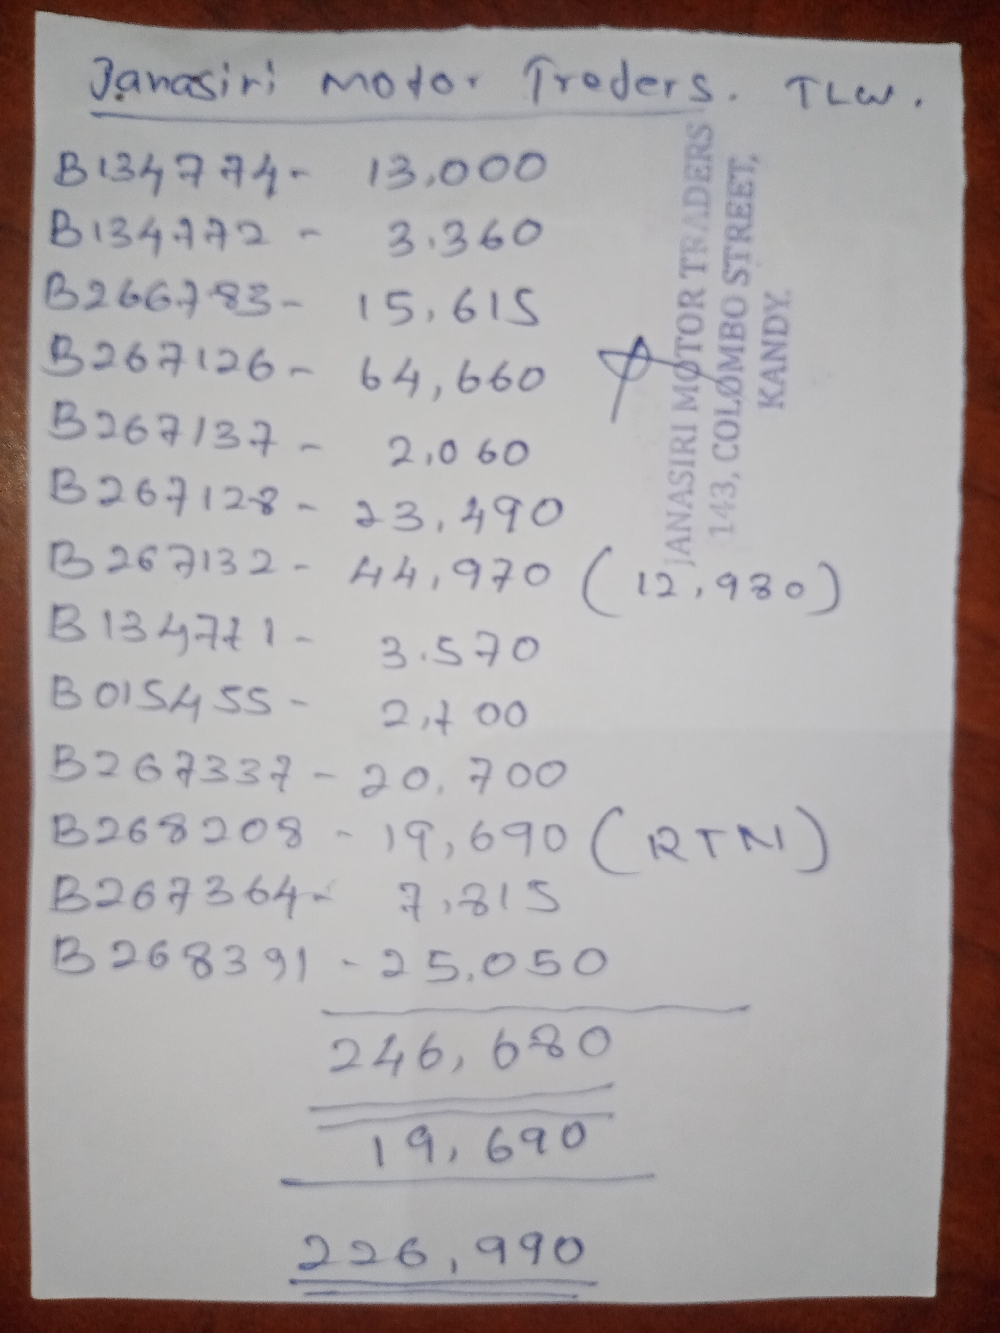 Janasiri Motor Traders. TLW.
B134774 - 13,000
B134772 - 3.360
B266783 - 15,615
B267126 - 64,660
B267137 - 2,060
B267128 - 23,490
B267132 - 44,970 (12,980)
B134771 - 3.570
B015455 - 2,700
B267337 - 20,700
B268208 - 19,690 (RTN)
B267364 - 7,815
B268391 - 25,050
246,680
19,690
226,990
JANASIRI MOTOR TRADERS
143, COLOMBO STREET,
KANDY.